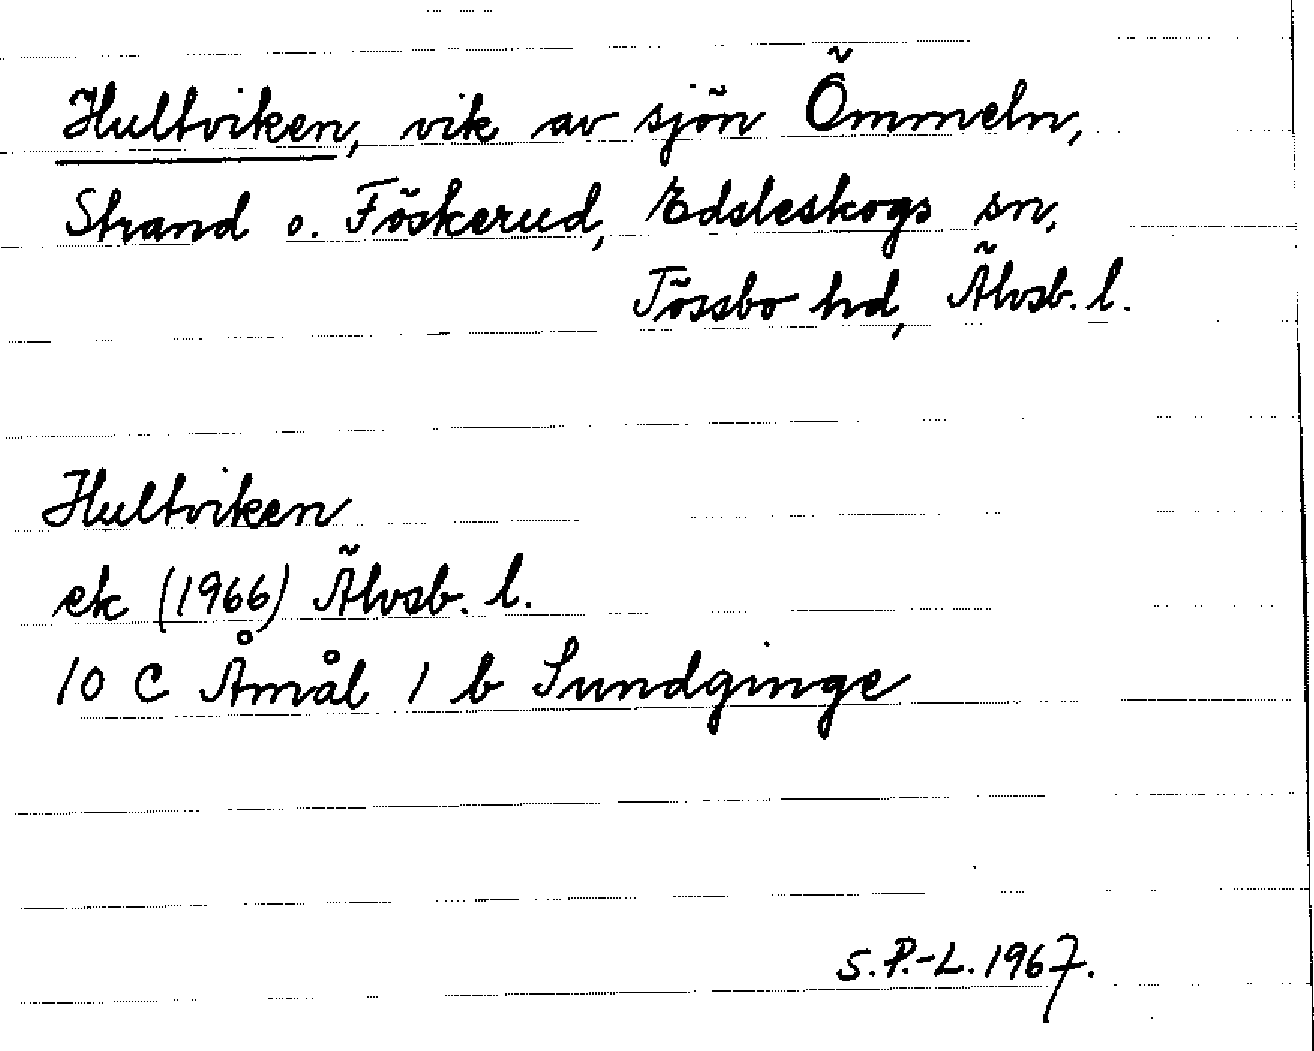 Hultviken, vik av sjön Ömmeln,
Strand o. Föskerud, Edsleskogs sn,
Tössbo hd, Älvsb. l.
Hultviken
ek (1966) Älvsb. l.
10 C Åmål 1 b Sundginge
S.P.-L. 1967.